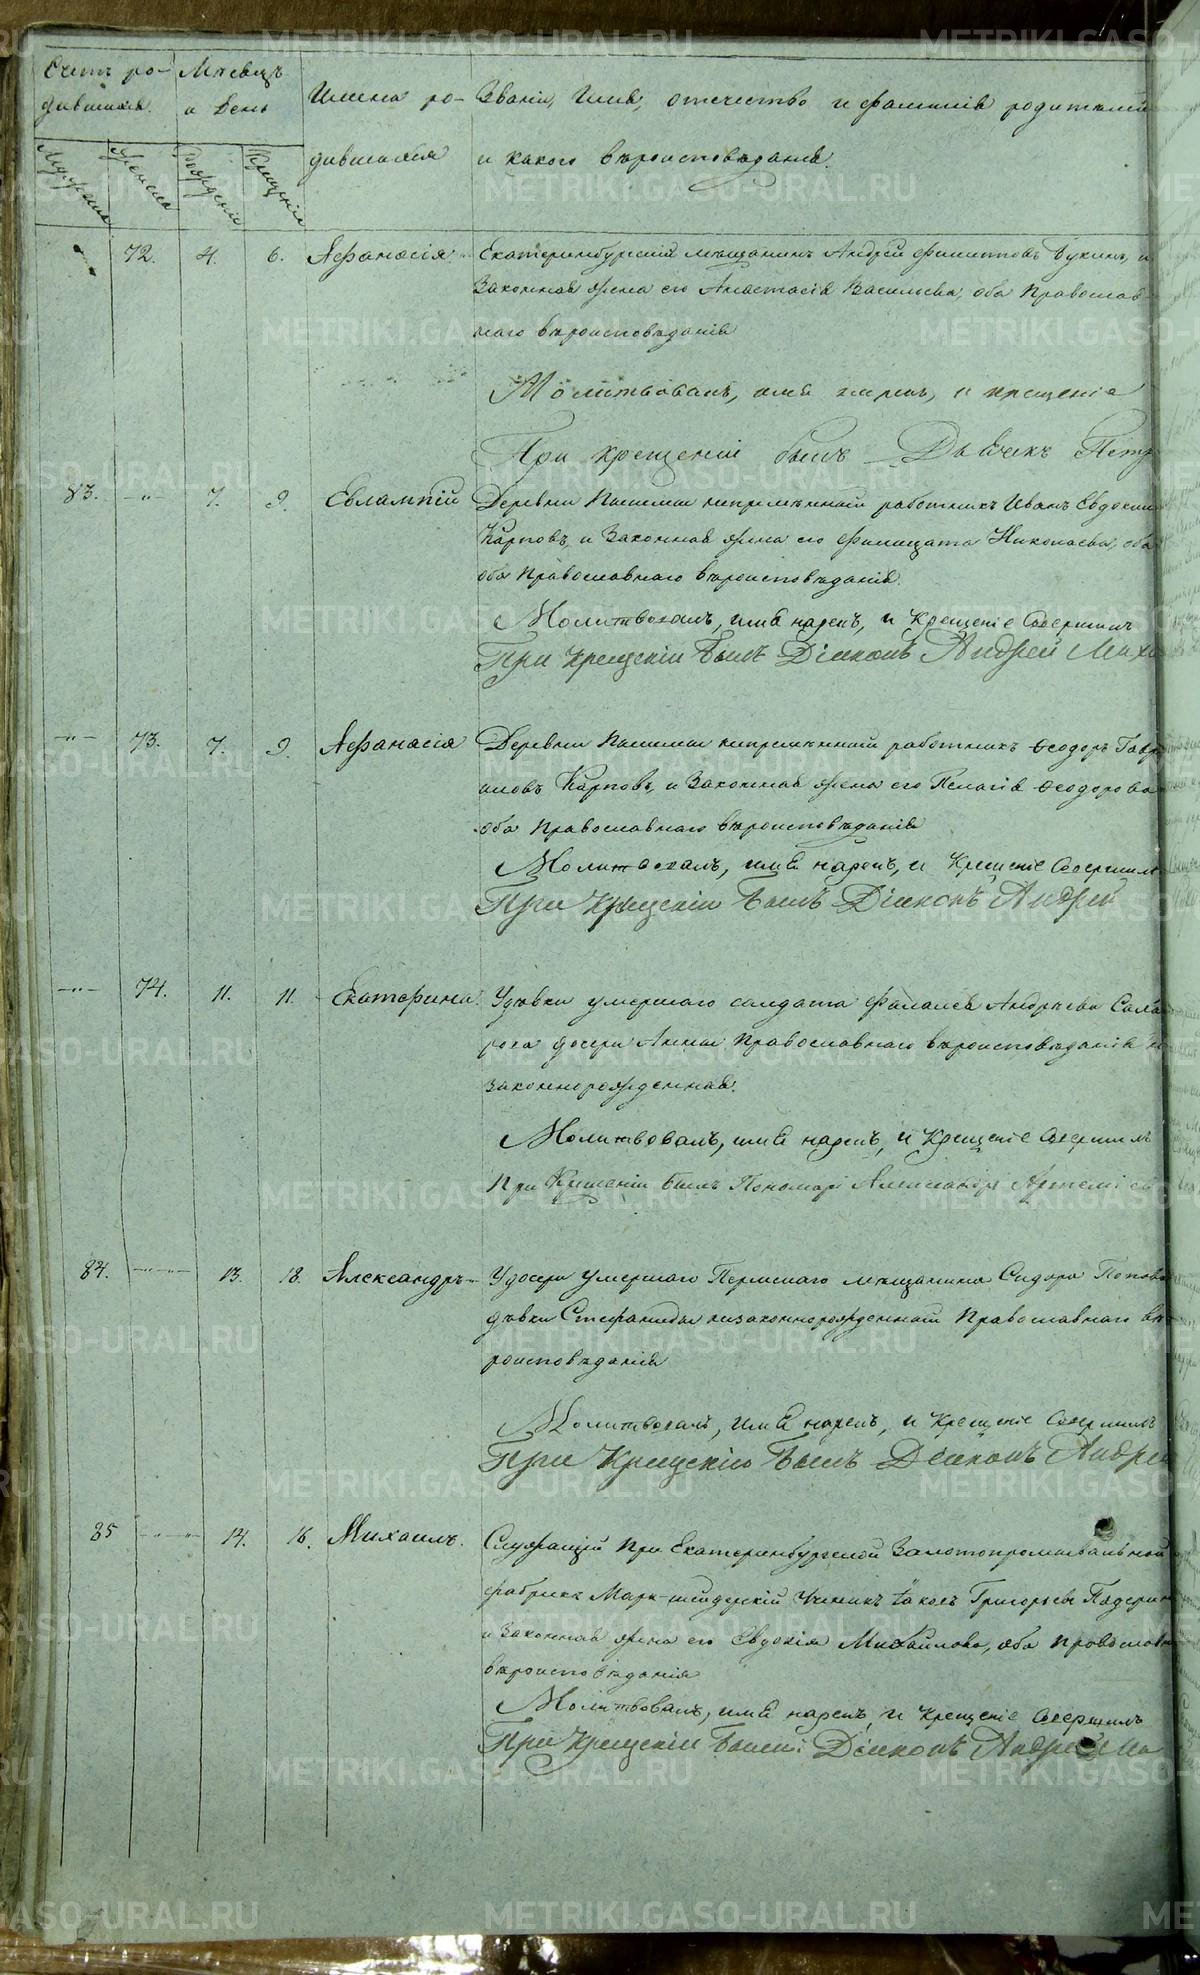 Счетъ ро- Мѣсяцъ Имена ро- Званіе, Имя, отечество и фамилія родителей
дившихся. и День дившихся и какого вѣроисповѣданія.
Мужеска Женска Рожденія Крещенія
72. 4. 6. Афанасія. Екатеринбургскій мѣщанинъ Андрей Филиповъ и
Законная жена его Анастасія Васильева, оба Православ-
наго вѣроисповѣданія
Молитвовалъ, имя нарекъ, и крещеніе
При крещеніи былъ Дьячекъ Петр
83. -"- 7. 9. Евлампій Деревни непремѣнный работникъ Иванъ Евдоким
Карповъ, и Законная жена его Николаева, оба
оба Православнаго вѣроисповѣданія.
Молитвовалъ, имя нарекъ, и Крещеніе Совершилъ
При крещеніи былъ Діаконъ Андрей Миха
-"- 73. 7. 9. Афанасія Деревни непремѣнный работникъ Ѳеодоръ Гавр
иловъ Карповъ, и Законная жена его Пелагія Ѳеодорова
оба Православнаго вѣроисповѣданія
Молитвовалъ, имя нарекъ, и Крещеніе Совершил
При Крещеніи былъ Діаконъ Андрей
-"- 74. 11. 11. Екатерина. У дѣвки умершаго солдата Андрѣева
дочери Анны Православнаго вѣроисповѣданія
законнорожденная.
Молитвовалъ, имя нарекъ, и Крещеніе Совершилъ
При Крещеніи былъ Пономарь Александръ
84. -"- 13. 18. Александръ У дочери умершаго Пермскаго мѣщанина Сидора Попова
дѣвки Стефаниды незаконнорожденный Православнаго вѣ-
роисповѣданія
Молитвовалъ, имя нарекъ, и Крещеніе Совершилъ
При Крещеніи былъ Діаконъ Андрей
85 -"- 14. 16. Михаилъ. Служащій при Екатеринбургской Золотопромывальной
фабрикѣ Марк-шейдерскій Ученикъ Григорьевъ
и Законная жена его Евдокія Михайлова, оба Православн
вѣроисповѣданія
Молитвовалъ, имя нарекъ, и Крещеніе Совершилъ
При Крещеніи былъ Діаконъ Андрей
METRIKI.GASO-URAL.RU